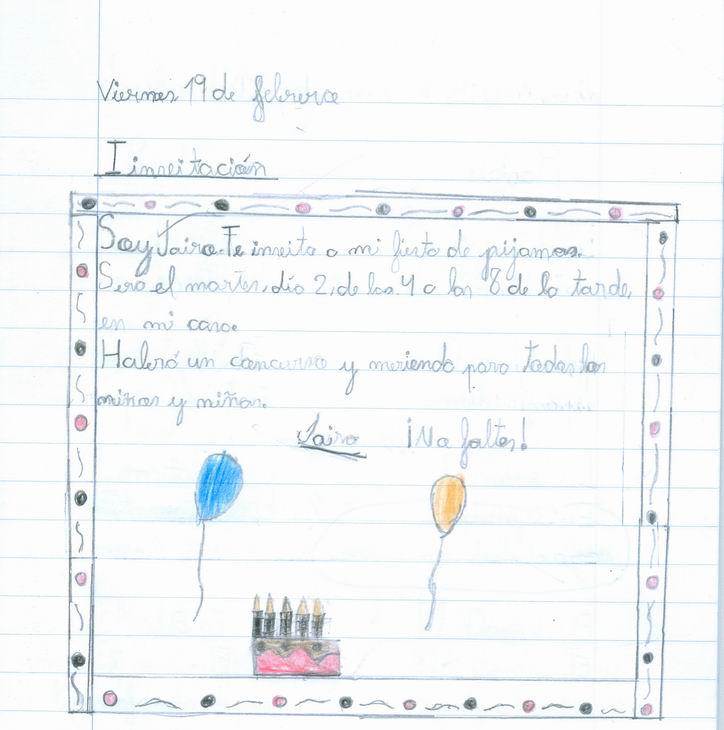 Viernes 19 de febrero
Invitación
Soy Jairo. Te invito a mi fiesta de pijamas.
Será el martes, día 2, de las 4 a las 8 de la tarde,
en mi casa.
Habrá un concurso y merienda para todos los
niños y niñas.
Jairo ¡No faltes!